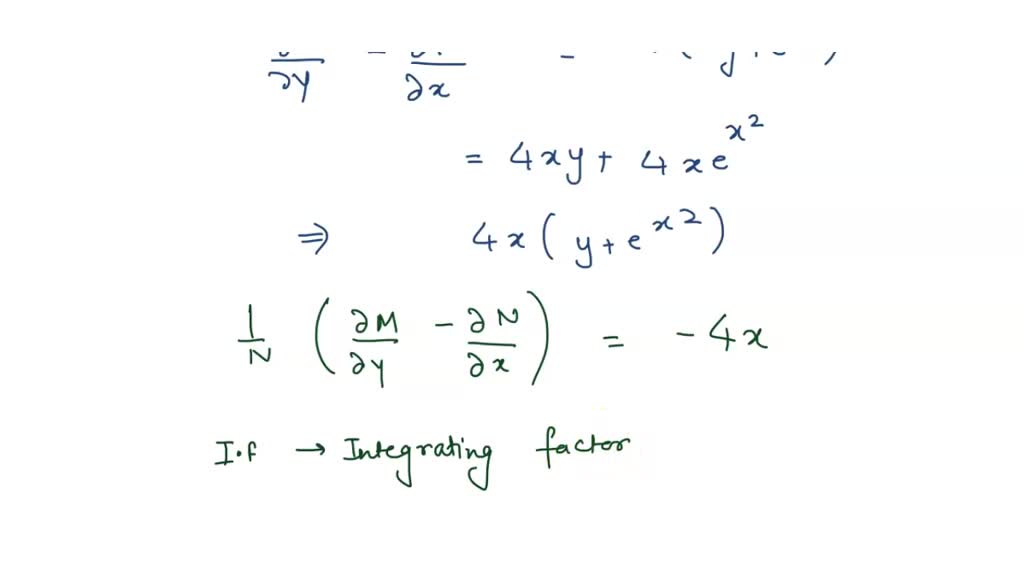 ∂y ∂x -
= 4xy + 4xe^x²
⇒ 4x(y+e^x²)
1/N (∂M/∂y - ∂N/∂x) = -4x
I.f → Integrating factor